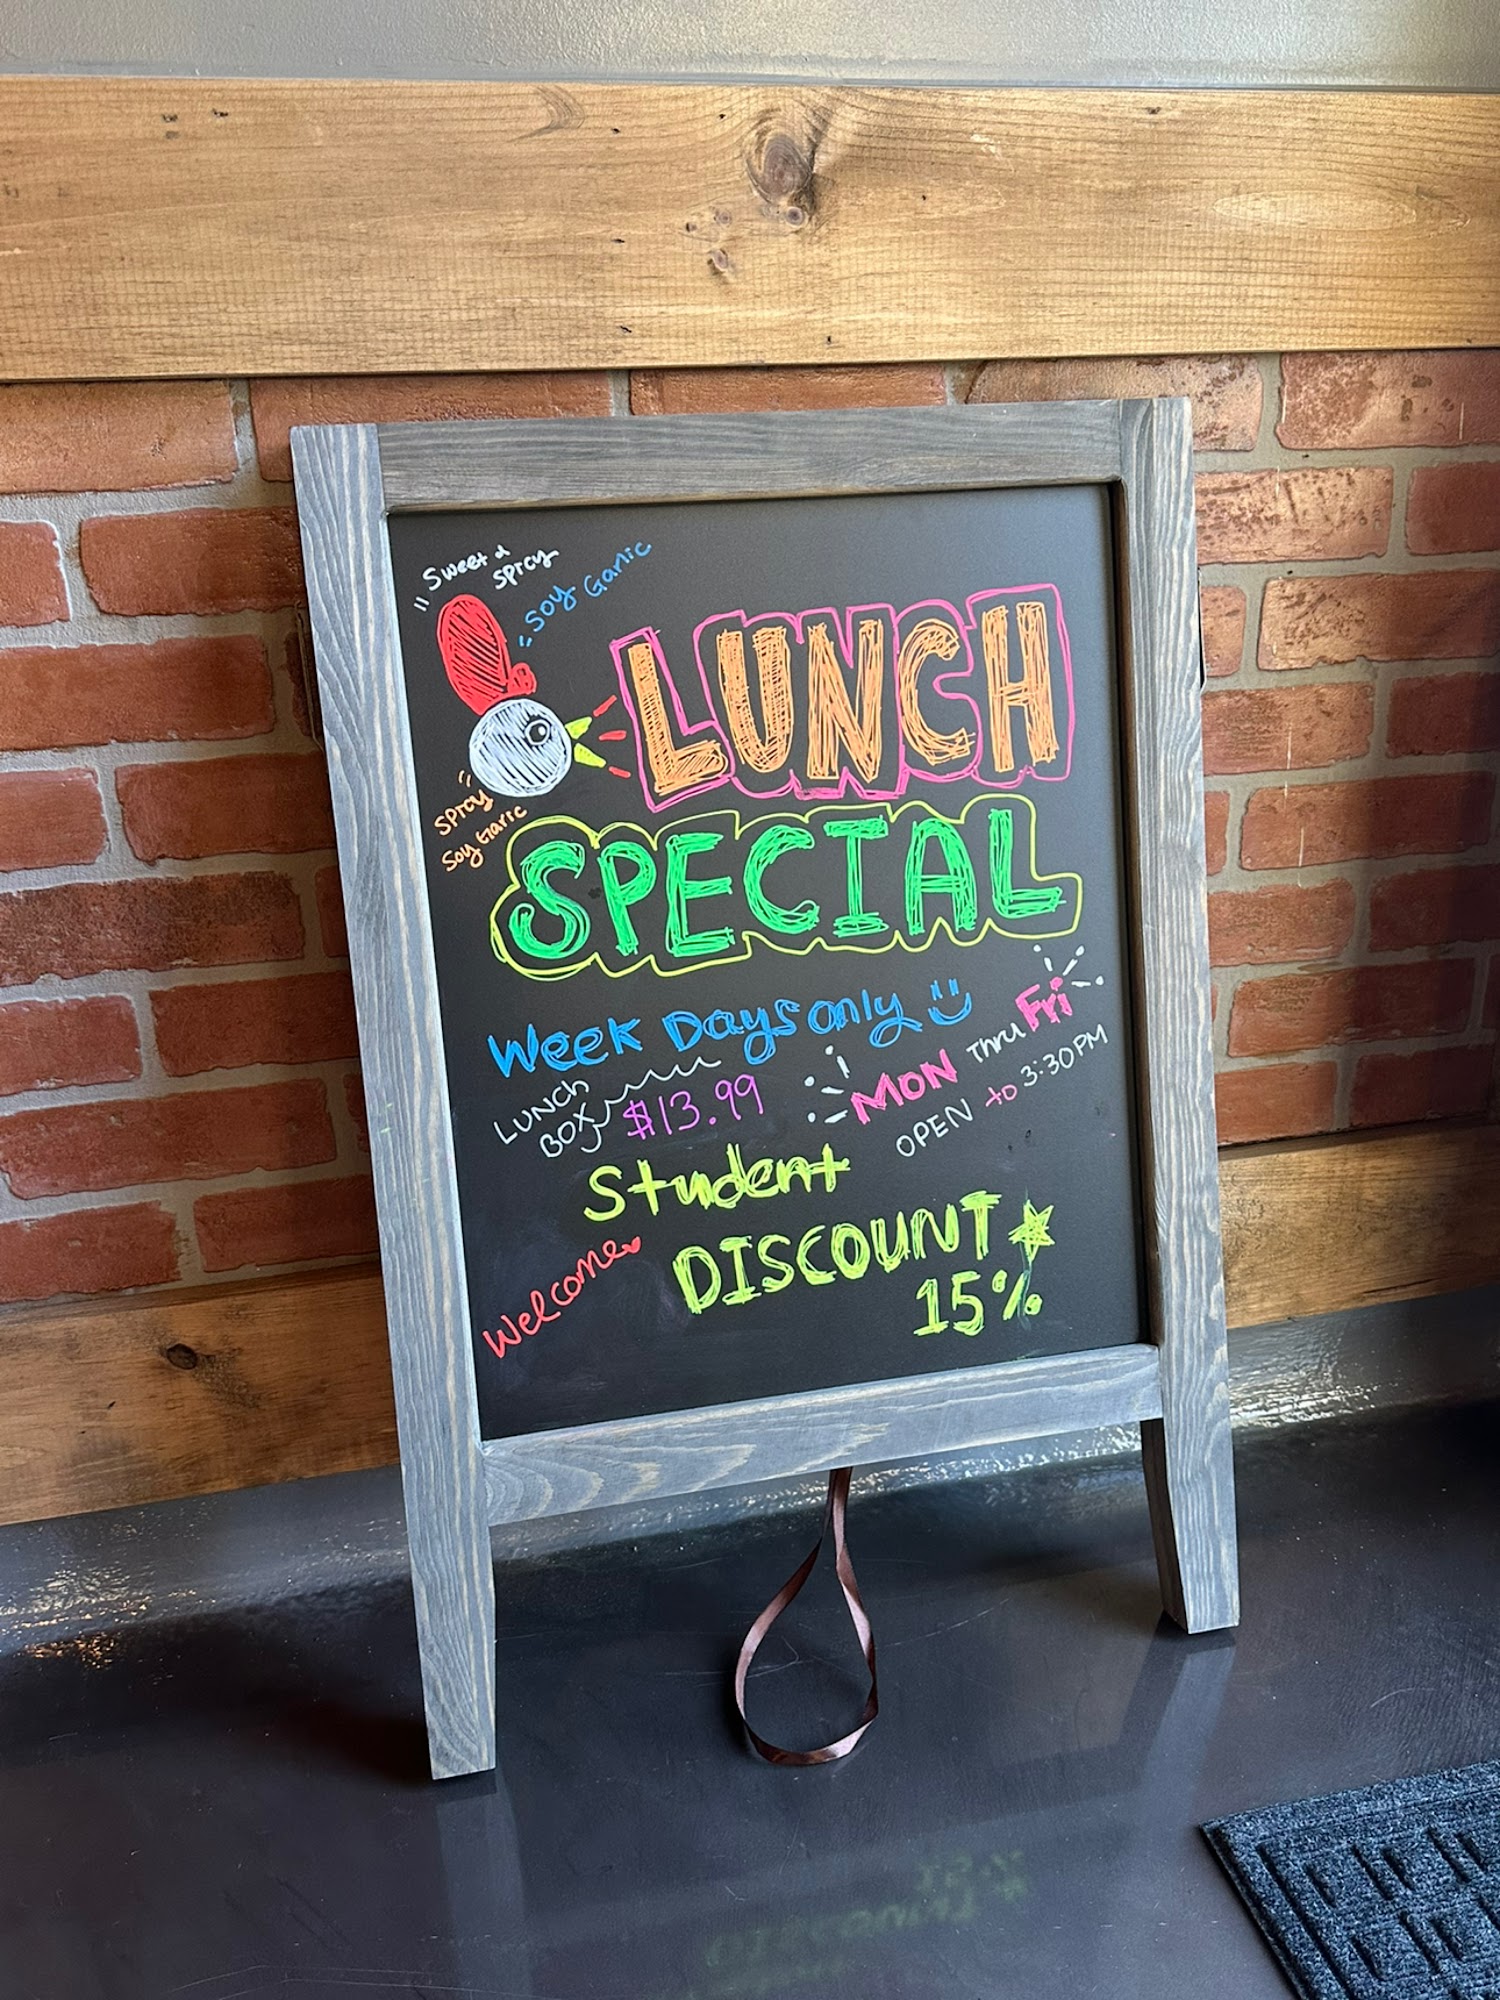 "Sweet &
spicy
"Soy Garlic
LUNCH
"Spicy
Soy Garlic
SPECIAL
Week Days only
LUNCH
BOX
$13.99
MON Thru Fri
OPEN to 3:30PM
Student
DISCOUNT
15%
Welcome